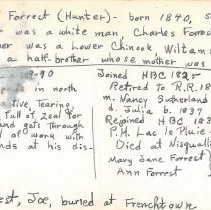 Forrest (Hunter) - born 1840, s
was a white man, Charles Forres
er was a Lower Chinook, Wiltam
a half-brother whose mother was
-90
in north
tive, Tearing
Full of zeal for
and gets through
of work with
ends at his dis-
Joined HBC 1825
Retired to R.R. 18
m. Nancy Sutherland
d. Julia b. 1837
Rejoined HBC 183
P.M. Lac le Pluie
Died at Nisqually
Mary Jane Forrest
Ann Forrest
est, Joe, buried at Frenchtown